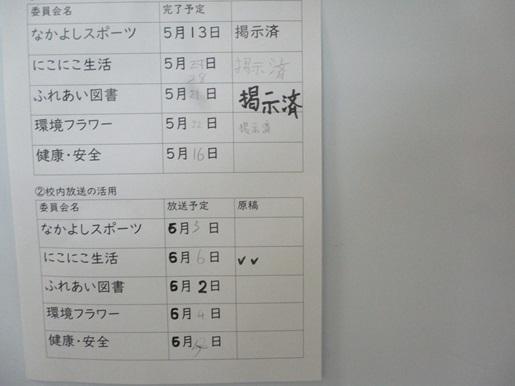 委員会名 完了予定
なかよしスポーツ 5月13日 掲示済
にこにこ生活 5月27日 掲示済
28
ふれあい図書 5月日 掲示済
環境フラワー 5月22日 掲示済
健康・安全 5月16日
②校内放送の活用
委員会名 放送予定 原稿
なかよしスポーツ 6月5日
にこにこ生活 6月6日 ✓✓
ふれあい図書 6月2日
環境フラワー 6月4日
健康・安全 6月日